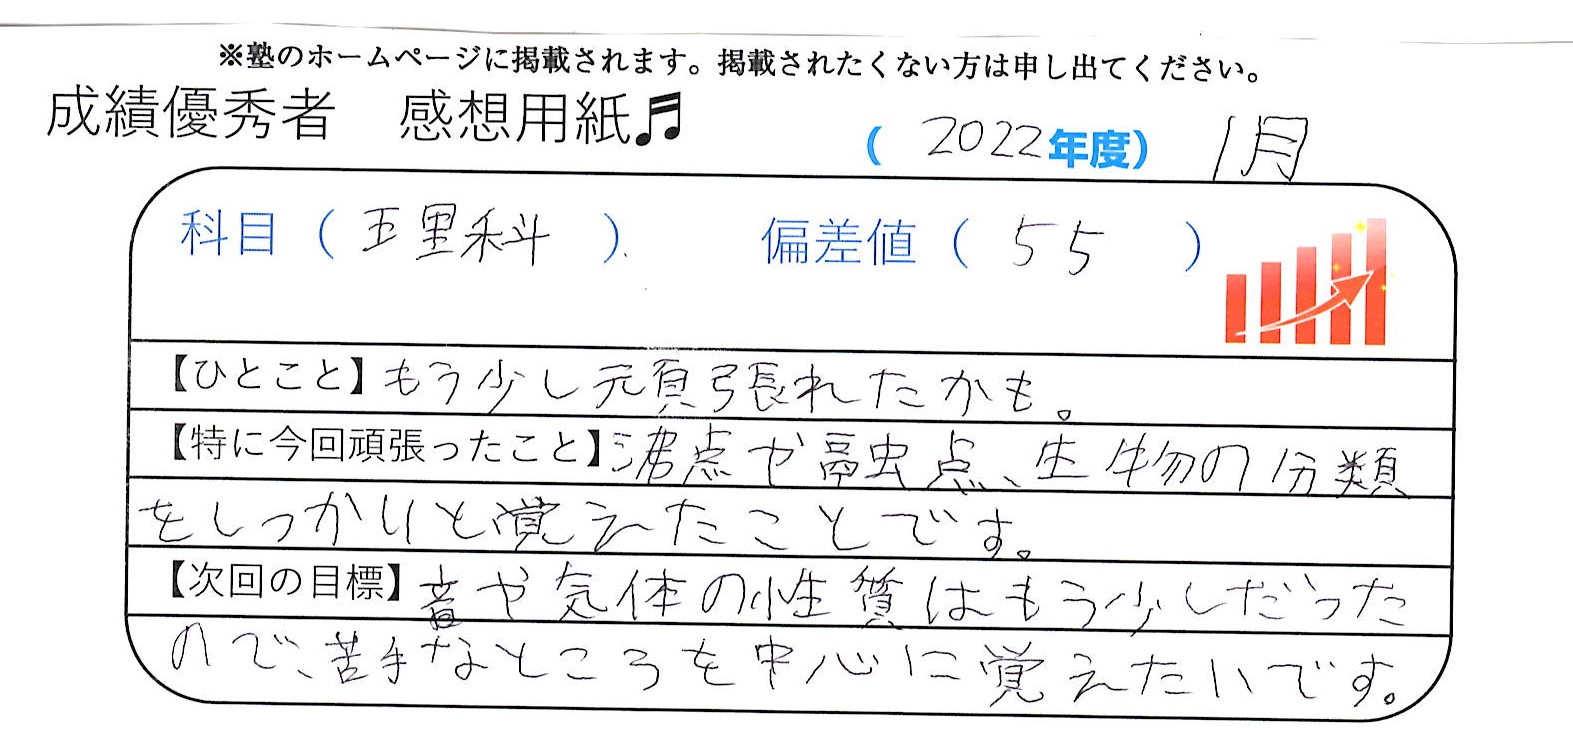 ※塾のホームページに掲載されます。掲載されたくない方は申し出てください。
成績優秀者　感想用紙♬
（ 2022年度） 1月
科目（ 理科 ） 偏差値（ 55 ）
【ひとこと】もう少し頑張れたかも。
【特に今回頑張ったこと】沸点や融点、生物の分類
をしっかりと覚えたことです。
【次回の目標】音や気体の性質はもう少しだった
ので、苦手なところを中心に覚えたいです。